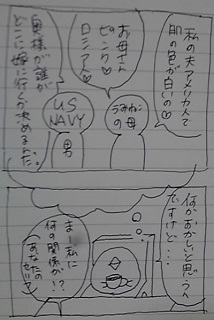 私の夫アメリカ人で
肌の色が白いの♡
お母さん
ピンク♡
ロシア人♡
奥様が誰が
どこに嫁に行くか決めるんだ。
うみねこの母
US
NAVY
男
何かおかしいと思うん
ですけど…
ま、私に
何の関係が!?
あなたの